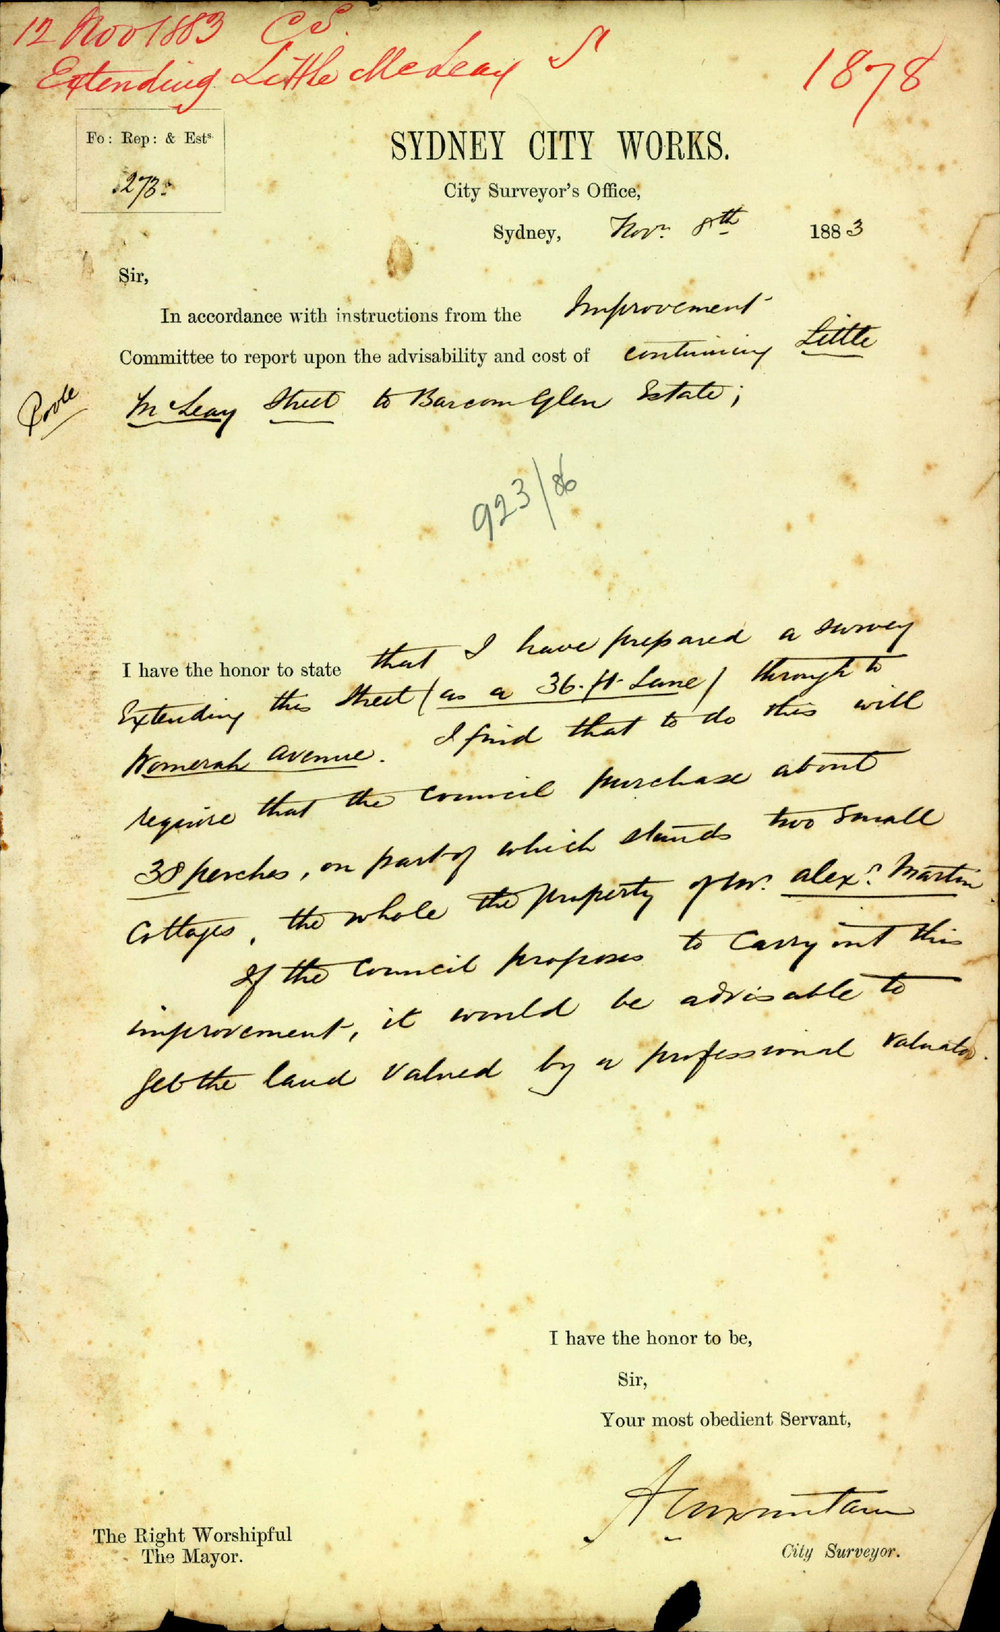 12 Nov 1883 C S.
Extending Little McLeay S
1878
Fo: Rep: & Ests.
273
SYDNEY CITY WORKS.
City Surveyor's Office,
Sydney, Novr. 8th 1883
Sir,
In accordance with instructions from the Improvement
Committee to report upon the advisability and cost of continuing Little
McLeay Street to Barcom Glen Estate;
923/86
I have the honor to state that I have prepared a survey
Extending this Street (as a 36.ft. Lane) through to
Womerah Avenue. I find that to do this will
require that the Council purchase about
38 perches, on part of which stands two small
Cottages, the whole the property of Mr. Alexr. Martin
If the Council proposes to carry out this
improvement, it would be advisable to
get the land valued by a professional valuator.
I have the honor to be,
Sir,
Your most obedient Servant,
City Surveyor.
The Right Worshipful
The Mayor.